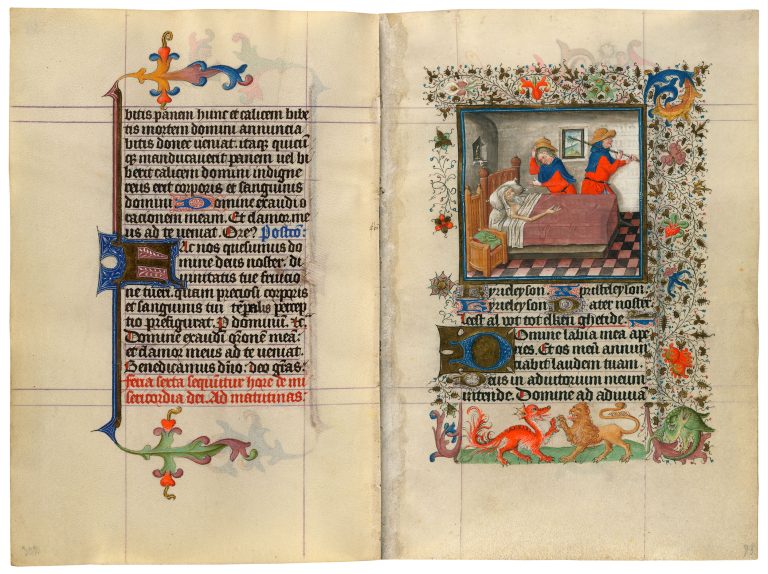 bitis panem hunc et calicem bibe
tis mortem domini annuncia
bitis donec veniat. itaq; quicū
q; manducaverit panem vel bi
berit calicem domini indigne
reus erit corporis et sanguinis
domini Domine exaudi o
rationem meam. Et clamor me
us ad te veniat. Ore? Postcō:
Fac nos quesumus do
mine deus noster. di
vinitatis tue fruicio
ne tueri. quam preciosi corporis
et sanguinis tui tēpalis percep
tio prefigurat. P dominū. &c.
Domine exaudi orōnem meā.
et clamor meus ad te veniat.
Benedicamus dño: deo grās.
feria sexta sequitur hore de mi
sericordia dei. Ad matutinas:
Kyrieleyson Xpristeleyson.
Kyrieleyson Pater noster.
leest al wt tot elken ghetide.
Domine labia mea ape
ries. Et os meū annun
ciabit laudem tuam
Deus in adiutorium meum
intende. Domine ad adiuvā